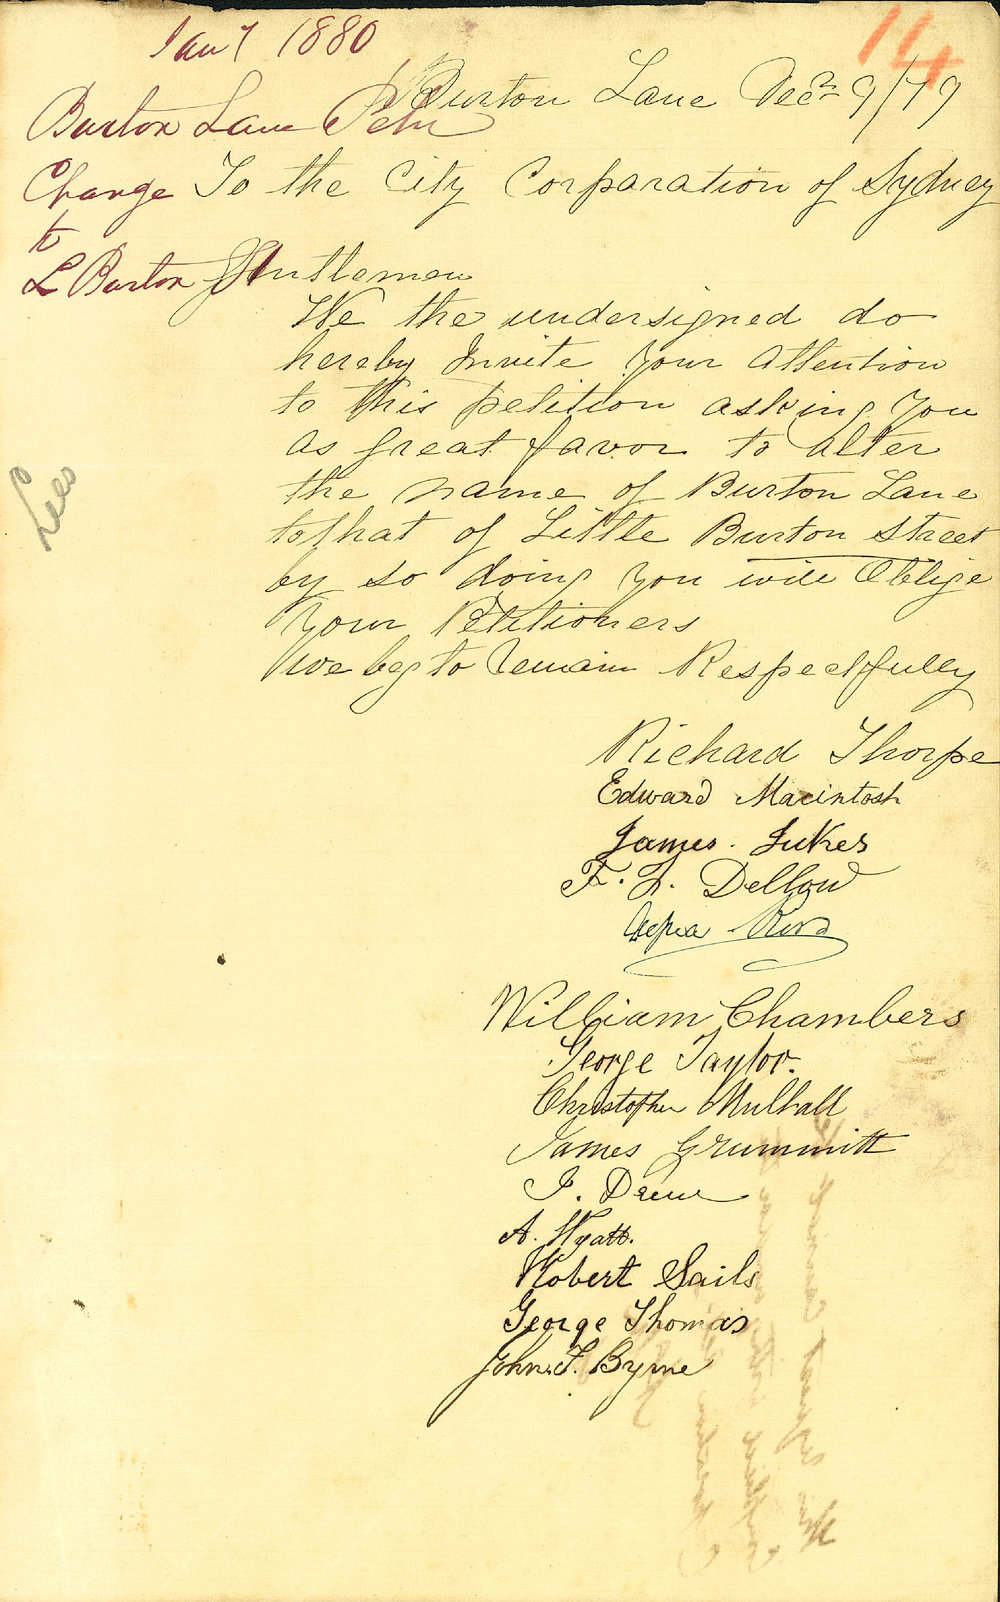 Jan 7 1880
14
Burton Lane Decr 9/79
Burton Lane Petn
Change
to
L Burton
To the City Corporation of Sydney
Gentlemen
We the undersigned do
hereby Invite Your Attention
to this petition asking You
as great favor to alter
the name of Burton Lane
to that of Little Burton Street
by so doing You will Oblige
Your Petitioners
We beg to Remain Respectfully
Richard Thorpe
Edward Macintosh
James. Jukes
F. L. Dellow
William Chambers
George Taylor.
Christopher Mulhall
James Grummitt
J. Drew
A. Wyatt.
Robert Sails
George Thomas
John. F. Byrne